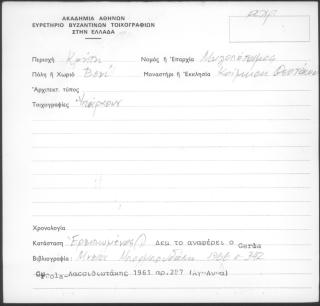 ΑΚΑΔΗΜΙΑ ΑΘΗΝΩΝ
ΕΥΡΕΤΗΡΙΟ ΒΥΖΑΝΤΙΝΩΝ ΤΟΙΧΟΓΡΑΦΙΩΝ
ΣΤΗΝ ΕΛΛΑΔΑ
Περιοχή Κρήτη Νομός ή Ἐπαρχία Μυλοπόταμος
Πόλη ή Χωριό Βενί Μοναστήρι ή Ἐκκλησία Κοίμηση Θεοτόκου
Ἀρχιτεκτ. τύπος
Τοιχογραφίες Ὑπάρχουν
Χρονολογία
Κατάσταση Ἐρειπωμένος(;) Δεμ το αναφέρει ο Gerola
Βιβλιογραφία 1966 σ. 342
Gerola-Λασσιθιωτάκης 1961 αρ.287 (Αγ.Αννα)